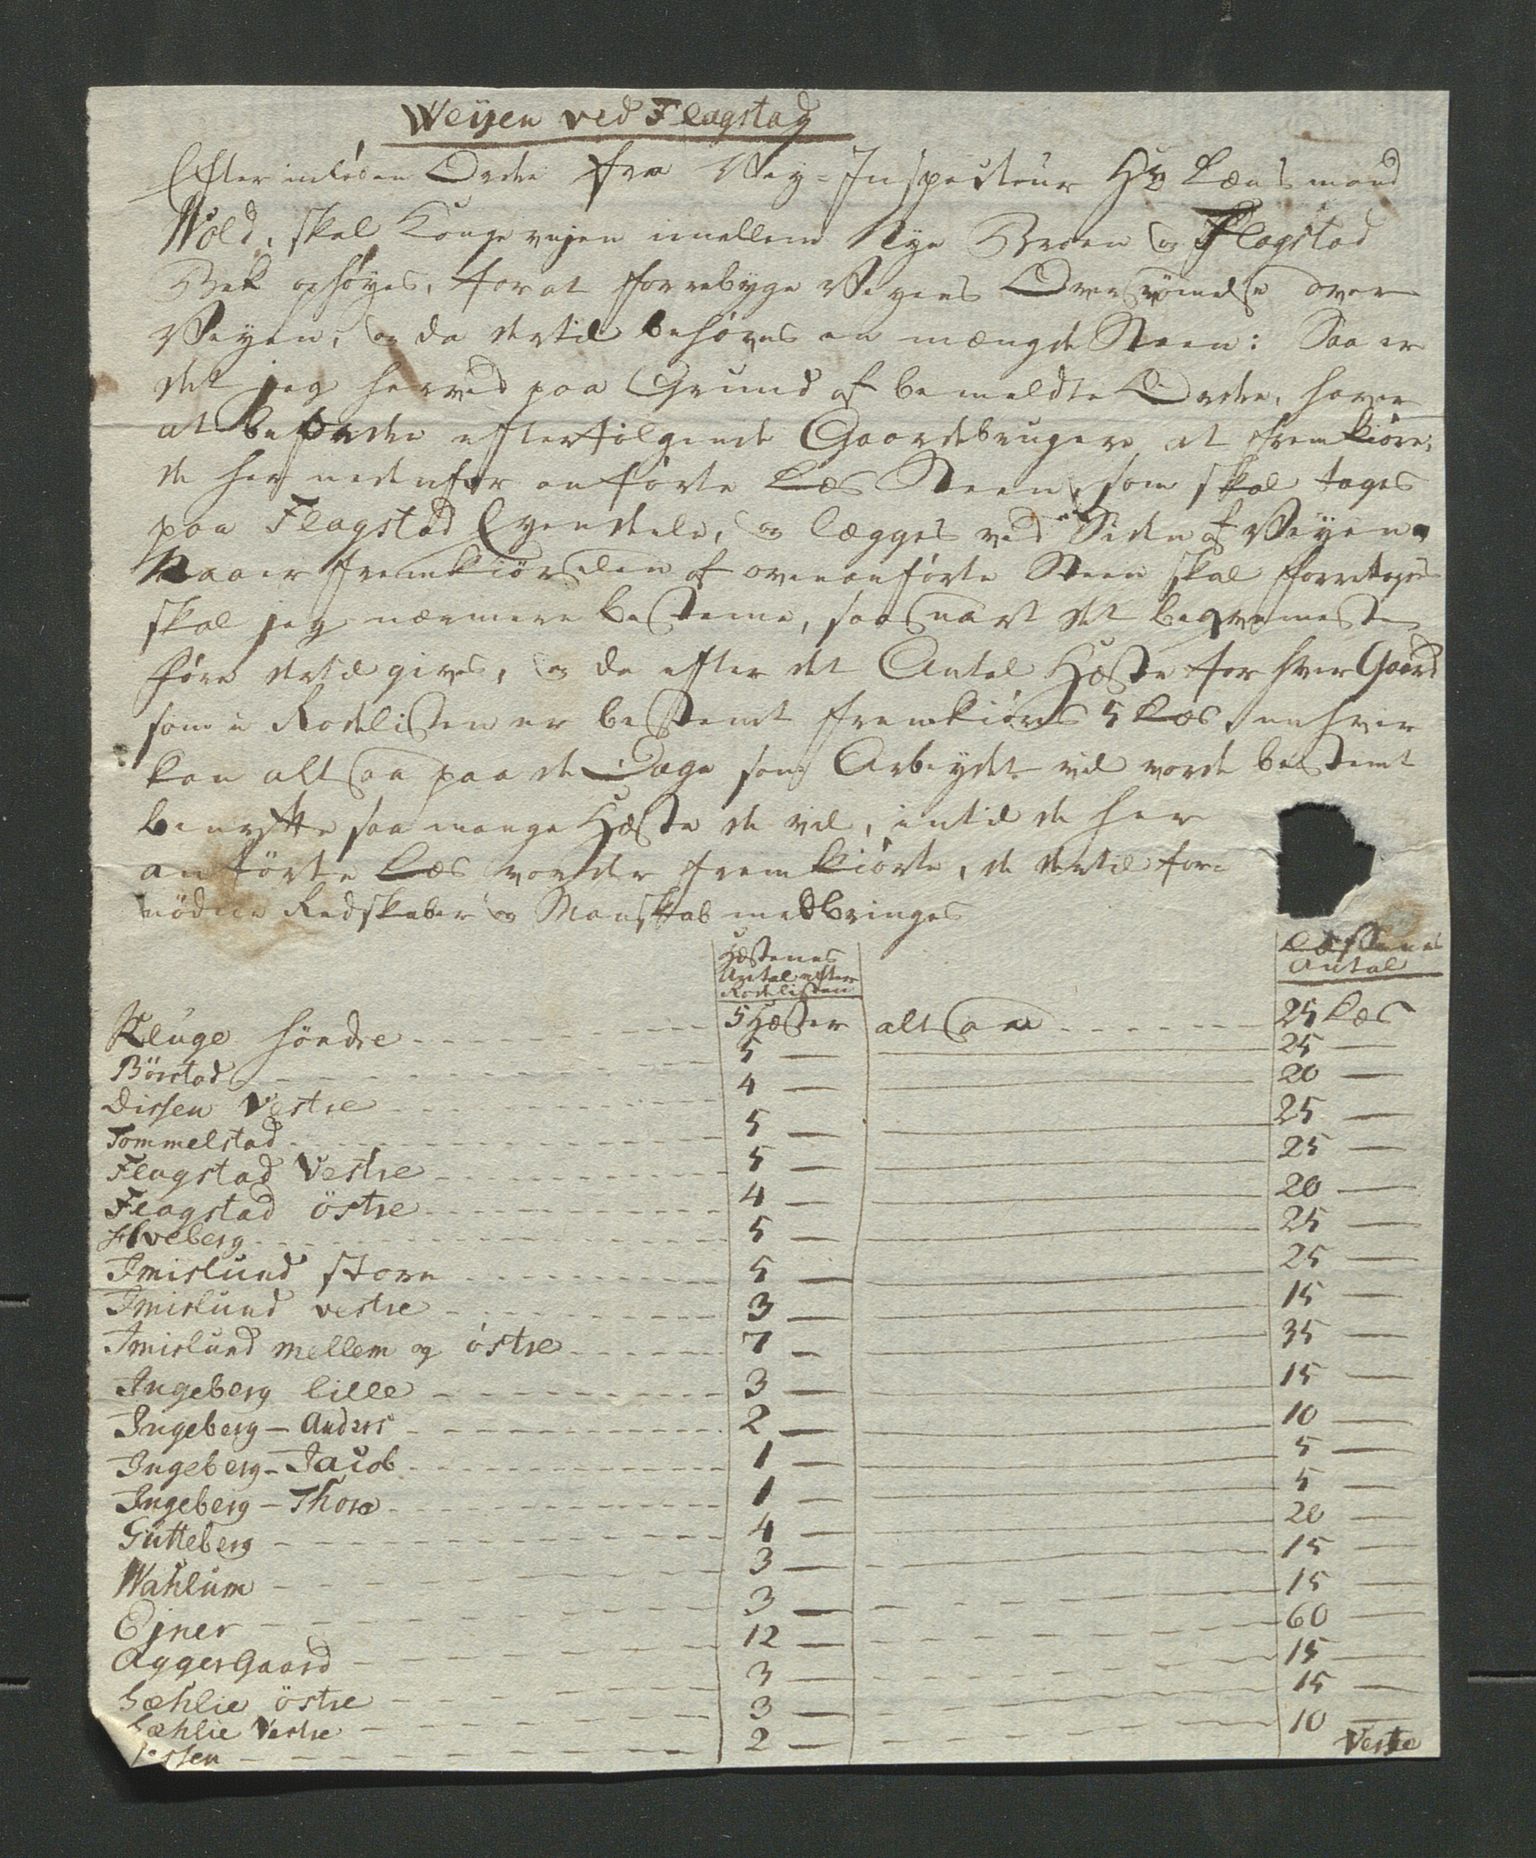 Weÿen ved Flagstad
Efter indløben Ordre fra Vey-Inspecteur Hr Lænsmand
Wold, skal Kongevejen imellem Nye Broen og Flagstad
Bek ophøyes, forat forrebyge Veyens Oversvömelse over
Veyen, og da dertil behøves en mængde Steen: Saa er
det jeg herved paa Grund af bemeldte Ordre, haver
at beordre efterfølgende Gaardebrugere at fremkiøre,
de her nedenfor anførte Læs Steen, som skal tages
paa Flagstad Eyendele, og lægges ved Siden af Veyen.
Naaer fremkiørselen af ovenanførte Steen skal forretages
skal jeg nærmere bestemme, saasnart det beqvemeste
føre dertil gives, og da efter det Antal Hæste for hver Gaard
som i Rodelisten er bestemt fremkiøres 5 Læs, enhver
kan altsaa paa de Dage som Arbeydet vil vorde bestemt
benytte saa mange Hæste de vil, intil de her
anførte Læs vorder fremkiørte, de dertil for-
nødne Redskaber og Manskab medbringes
Hæstenes Antal efter Rodelisten Læssenes Antal
Kluge söndre 5 Hæster altsaa 25 Læs
Börstad 5 — 25 —
Dissen Vestre 4 — 20 —
Tommelstad 5 — 25 —
Flagstad Vestre 5 — 25 —
Flagstad östre 4 — 20 —
Hveberg 5 — 25 —
Imislund store 5 — 25 —
Imislund vestre 3 — 15 —
Imislund mellem og östre 7 — 35 —
Ingeberg lille 3 — 15 —
Ingeberg – Anders 2 — 10 —
Ingeberg – Jacob 1 — 5 —
Ingeberg – Thore 1 — 5 —
Gutteberg 4 — 20 —
Wahlum 3 — 15 —
Ejner 3 — 15 —
AggerGaard 12 — 60 —
Sæhlie östre 3 — 15 —
Sæhlie Vestre 3 — 15 —
2 — 10 —
Vestre